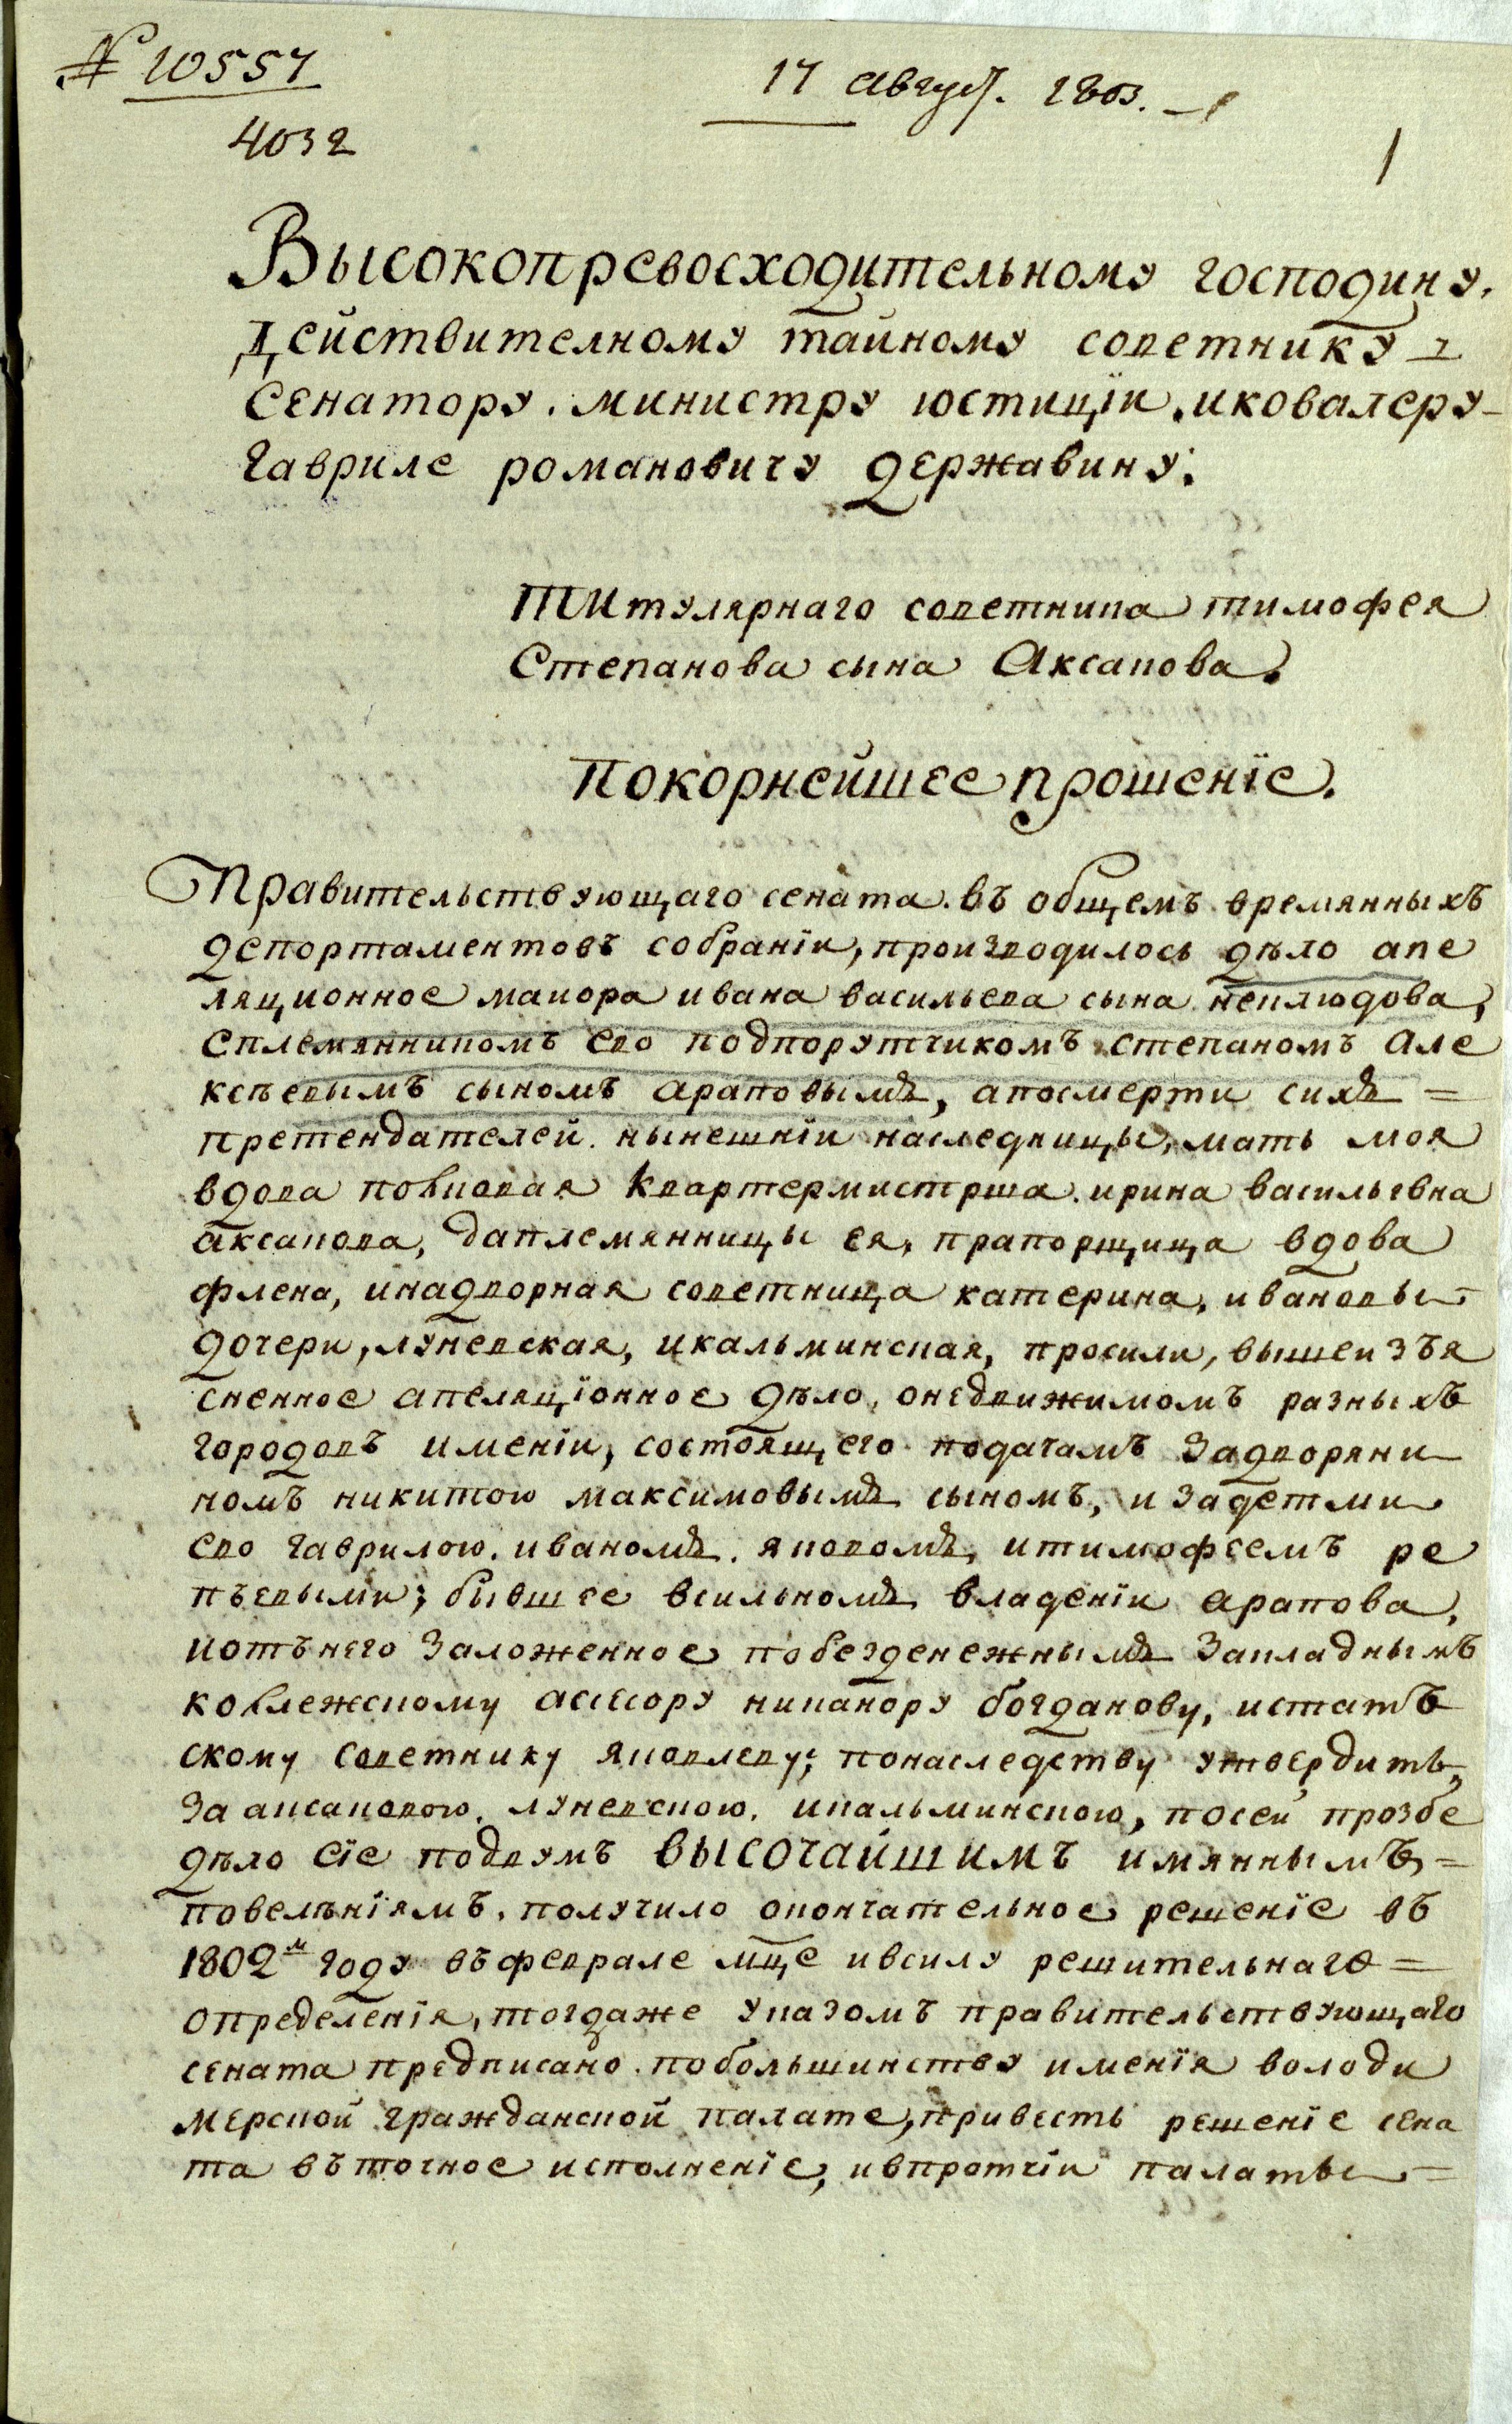 № 10557
17 август. 1803.
4032
1
Высокопревосходительному господину.
действителному тайному советнику
сенатору. министру юстицїи. иковалеру
гавриле романовичу державину:
титулярнаго советника тимофея
Степанова сына Аксакова.
покорнейшее прошенїе.
Правительствующаго сената. въ общемъ времянныхъ
депортаментовъ собранїи, производилось дѣло апе
ляционное маиора ивана васильева сына неплюдова,
сплемянникомъ ево подпорутчикомъ степаномъ але
ксѣевымъ сыномъ араповымъ, апосмерти сихъ =
претендателей. нынешнїи наследницы, мать моя
вдова полковая квартермистрша. ирина васильевна
аксакова, даплемянницы ея, прапорщица вдова
флена, инадворная советница катерина, ивановы
дочери, луневская, икальминская, просили, вышеизъя
сненное апеляцїонное дѣло, онедвижимомъ разныхъ
городовъ именїи, состоящего подачамъ задворяни
номъ никитою максимовымъ сыномъ, и задетми
ево гаврилою. иваномъ. яковомъ, итимофеемъ ре
пъевыми; бывшее всильномъ владенїи арапова,
иотънего заложенное побезденежнымъ закладнымъ
коллежскому асесору никанору богданову, истатъ
скому советнику яковлеву; понаследству утвердить,
за аксаковою. луневскою. икальминскою, посей прозбе
дѣло сїе подвумъ ВЫСОЧАЙШИМЪ имяннымъ =
повелѣнїямъ. получило окончательное решенїе въ
1802м году въфеврале мце ивсилу решительнаго =
определенїя, тогдаже указомъ правительствующаго
сената предписано. побольшинству именїя володи
мерской гражданской палате, привесть решенїе сена
та въточное исполненїе, ивпротчїи палаты =